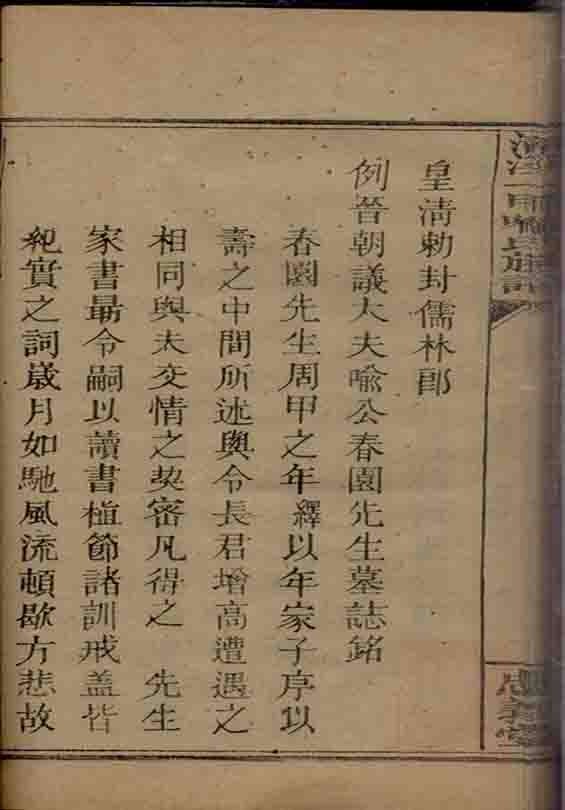 皇淸勅封儒林郎
例晉朝議大夫喻公春園先生墓誌銘
春園先生周甲之年 繹以年家子序以
壽之中間所述與令長君增高遭遇之
相同與夫交情之契密凡得之 先生
家書最令嗣以讀書植節諸訓戒蓋皆
紀實之詞歲月如馳風流頓歇方悲故